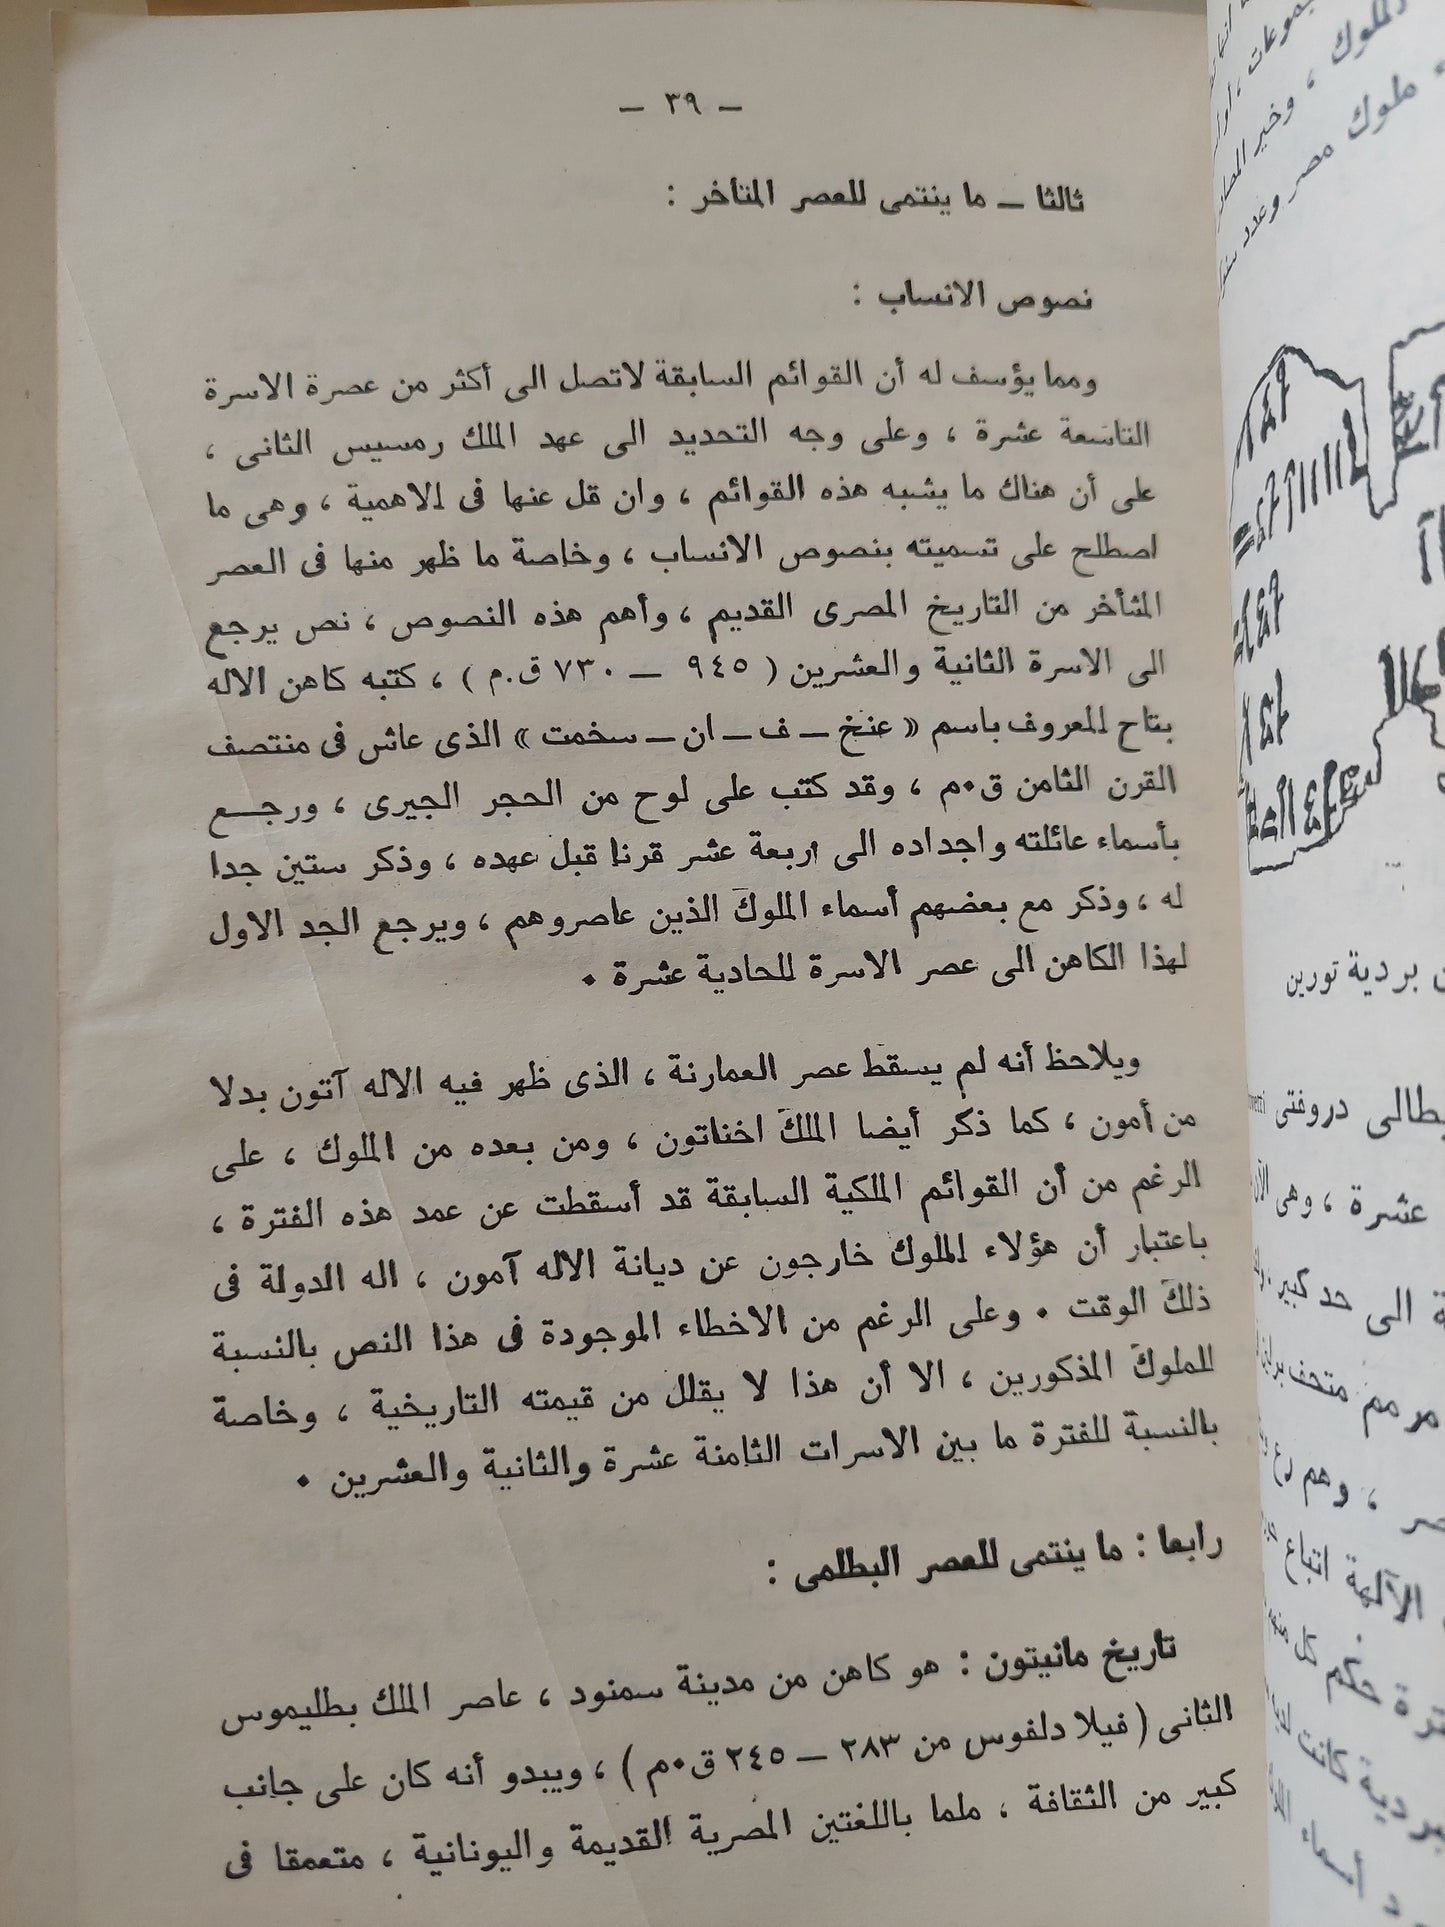 — ٣٩ —
ثالثا — ما ينتمى للعصر المتأخر :
نصوص الانساب :
ومما يؤسف له أن القوائم السابقة لاتصل الى أكثر من عصرة الاسرة
التاسعة عشرة ، وعلى وجه التحديد الى عهد الملك رمسيس الثانى ،
على أن هناك ما يشبه هذه القوائم ، وان قل عنها فى الاهمية ، وهى ما
اصطلح على تسميته بنصوص الانساب ، وخاصة ما ظهر منها فى العصر
المتأخر من التاريخ المصرى القديم ، وأهم هذه النصوص ، نص يرجع
الى الاسرة الثانية والعشرين ( ٩٤٥ — ٧٣٠ ق.م ) ، كتبه كاهن الاله
بتاح المعروف باسم « عنخ — ف — ان — سخمت » الذى عاش فى منتصف
القرن الثامن ق٠م ، وقد كتب على لوح من الحجر الجيرى ، ورجـع
بأسماء عائلته واجداده الى اربعة عشر قرنا قبل عهده ، وذكر ستين جدا
له ، وذكر مع بعضهم أسماء الملوك الذين عاصروهم ، ويرجع الجد الاول
لهذا الكاهن الى عصر الاسرة الحادية عشرة ٠
ويلاحظ أنه لم يسقط عصر العمارنة ، الذى ظهر فيه الاله آتون بدلا
من أمون ، كما ذكر أيضا الملك اخناتون ، ومن بعده من الملوك ، على
الرغم من أن القوائم الملكية السابقة قد أسقطت عن عمد هذه الفترة ،
باعتبار أن هؤلاء الملوك خارجون عن ديانة الاله آمون ، اله الدولة فى
ذلك الوقت ٠ وعلى الرغم من الاخطاء الموجودة فى هذا النص بالنسبة
للملوك المذكورين ، الا أن هذا لا يقلل من قيمته التاريخية ، وخاصة
بالنسبة للفترة ما بين الاسرات الثامنة عشرة والثانية والعشرين ٠
رابعا : ما ينتمى للعصر البطلمى :
تاريخ مانيتون : هو كاهن من مدينة سمنود ، عاصر الملك بطليموس
الثانى ( فيلا دلفوس من ٢٨٣ — ٢٤٥ ق٠م ) ، ويبدو أنه كان على جانب
كبير من الثقافة ، ملما باللغتين المصرية القديمة واليونانية ، متعمقا فى
الملوك ، وخير
، ملوك مصر وعدد
بردية تورين
دروفتى
عشرة ، وهى
الى حد كبير
مرمم متحف
، وهم
الآلهة اتباع
حكم كل
كانت
أسماء